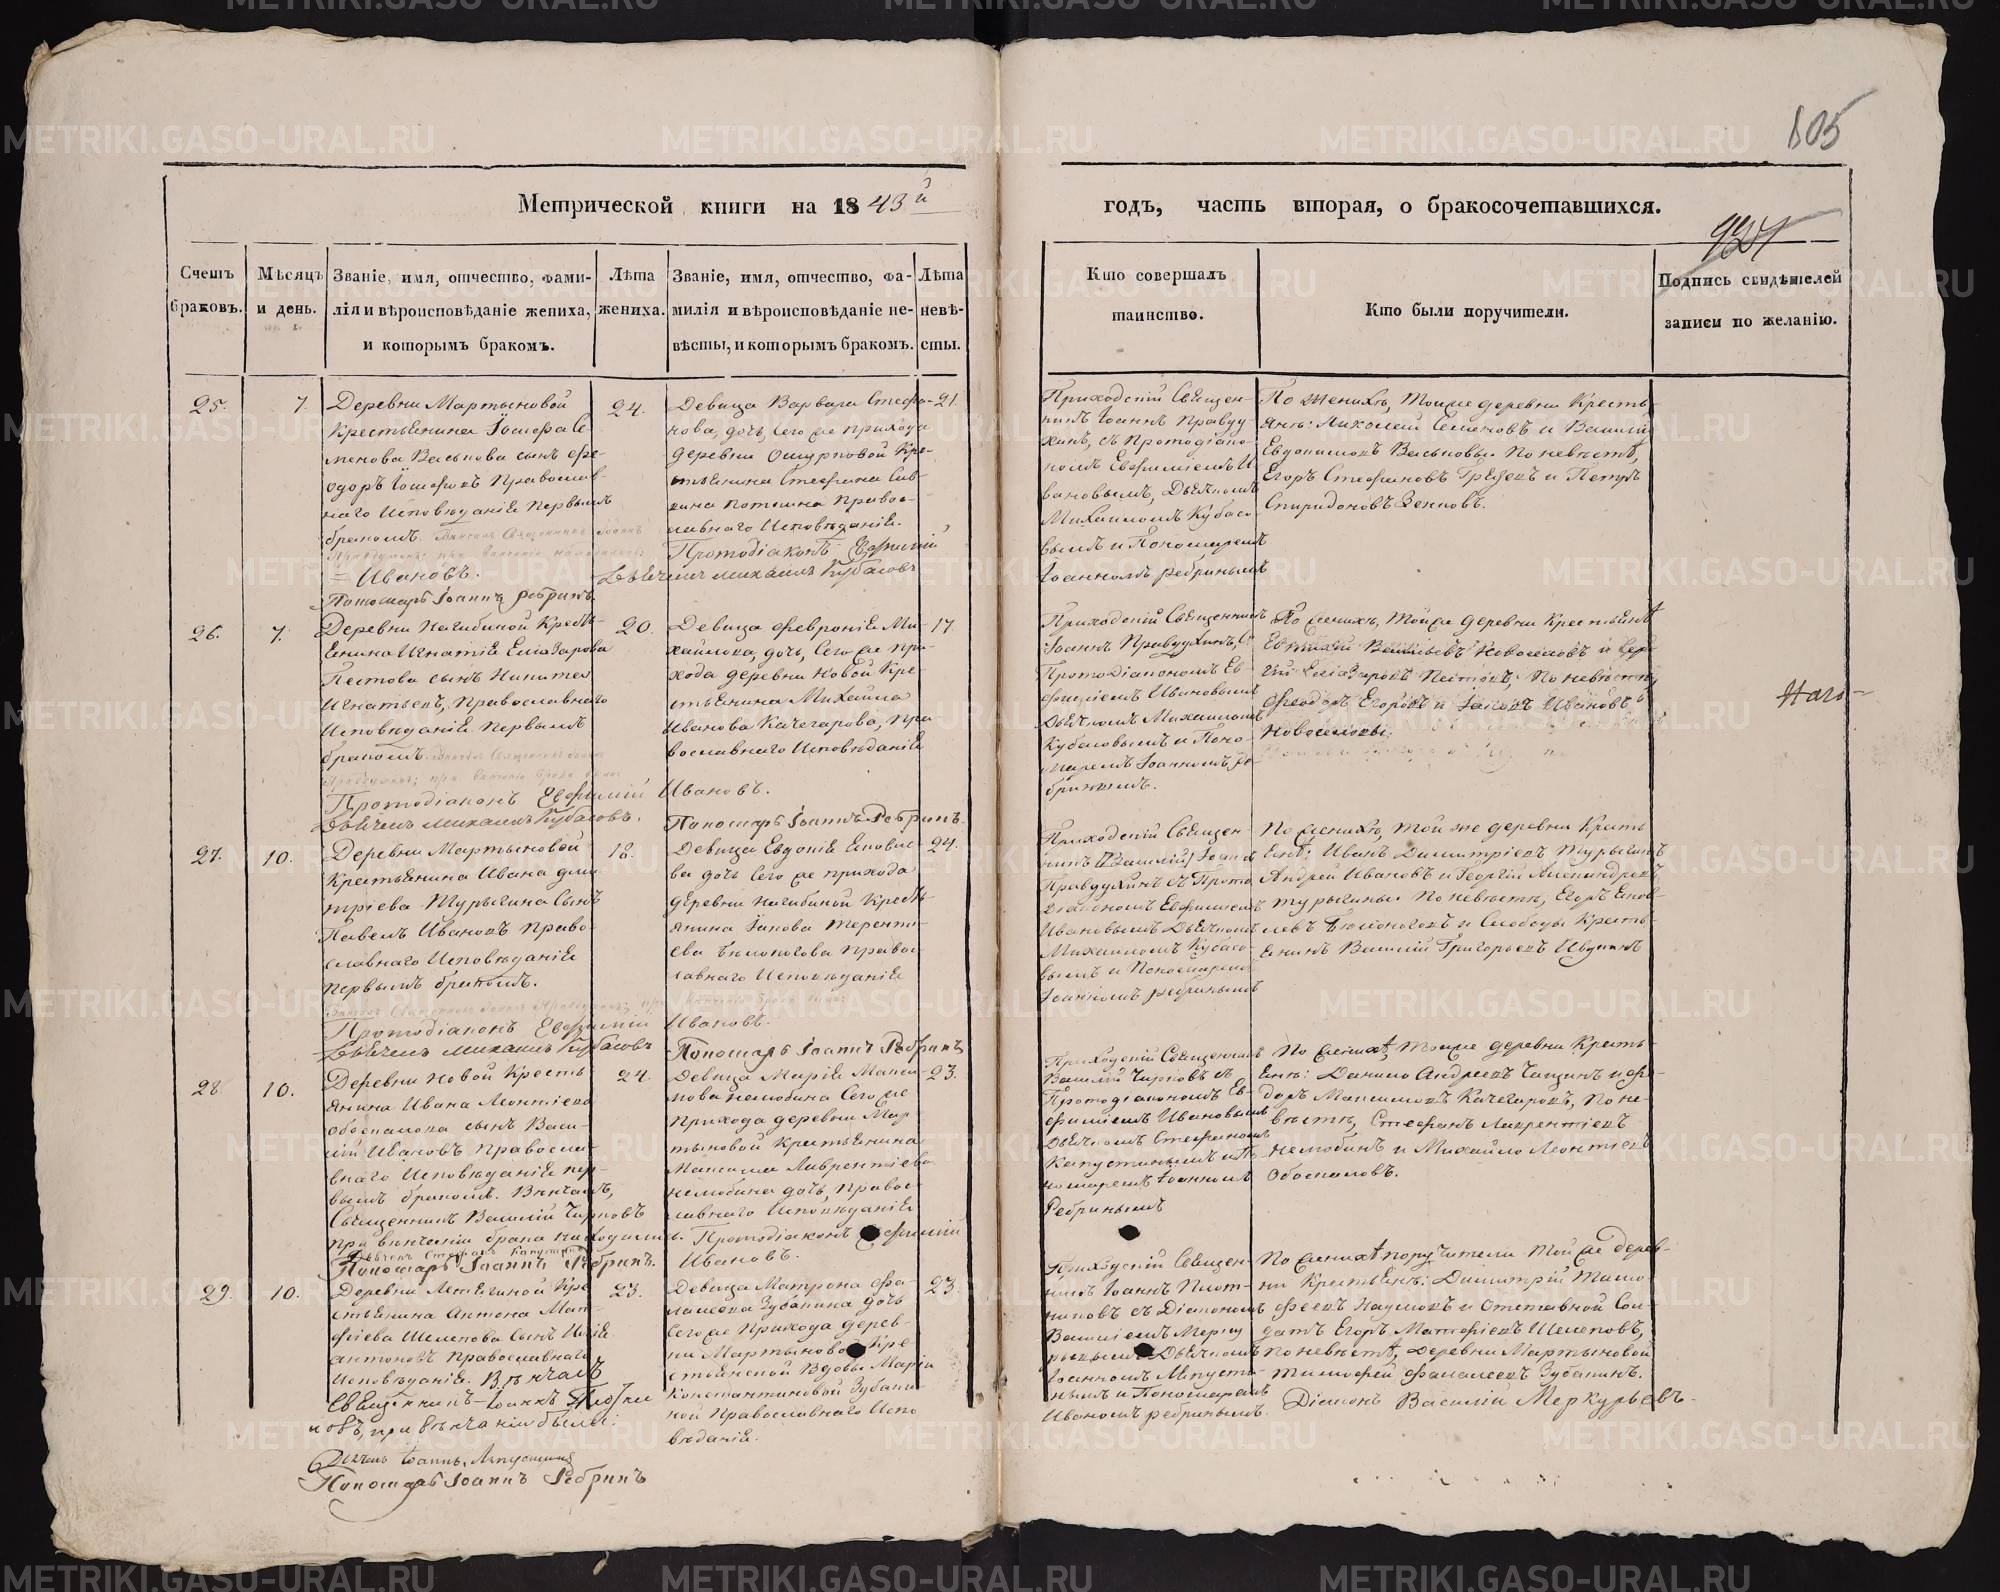 805
Метрической книги на 1843й
годъ, часть вторая, о бракосочетавшихся.
Счетъ браковъ.
Мѣсяцъ и день.
Званіе, имя, отчество, фами-
лія и вѣроисповѣданіе жениха,
и которымъ бракомъ.
Лѣта
жениха.
Званіе, имя, отчество, фа-
милія и вѣроисповѣданіе не-
вѣсты, и которымъ бракомъ.
Лѣта
невѣ-
сты.
Кто совершалъ
таинство.
Кто были поручители.
Подпись свидѣтелей
записи по желанію.
25.
7.
Деревни Мартыновой
Крестьянина Іосифа Се
менова Васькова сынъ Фе-
одоръ Іосифовъ Православ-
наго Исповѣданіе Первымъ
бракомъ.
= Ивановъ.
Пономарь Іоаннъ Ребринъ.
24.
Девица Варвара Стефа-
нова, дочь, Сего же прихода
деревни Ошурковой Кре-
стьянина Стефана Сав-
вина Православнаго Исповѣданіе.
Протодіаконъ Евфимій
Дьячекъ Михаилъ Кубасовъ
21.
Приходскій Священ-
никъ Іоаннъ Правду
хинъ, съ Протодіако-
номъ Евфиміемъ И
вановымъ, Дьячкомъ
Михаиломъ Кубасо
вымъ и Пономаремъ
Іоанномъ Ребринымъ
По женихѣ, Тойже деревни Кресть-
яне: Николай Семеновъ и Василій
Евдокимовъ Васьковы. По невѣстѣ,
Егоръ Стефановъ и Петръ
Спиридоновъ Зенковъ.
26.
7.
Деревни Нагибиной Кресть-
янина Игнатіе Елиазарова
Пестова сынъ Никита
Игнатьевъ, Православнаго
Исповѣданіе Первымъ
бракомъ.
Протодіаконъ Евфимій
Дьячекъ Михаилъ Кубасовъ.
20.
Девица Февроніе Ми-
хайлова, дочь, Сего же при-
хода деревни Новой Кре-
стьянина Михайла
Иванова Качегарова, Пра
вославнаго Исповѣданіе
Ивановъ.
Пономарь Іоаннъ Ребринъ.
17.
Приходскій Священникъ
Іоаннъ Правдухинъ, съ
Протодіакономъ Ев-
фиміемъ Ивановымъ
Дьячкомъ Михаиломъ
Кубасовымъ и Поно-
маремъ Іоанномъ Ре-
бринымъ.
По женихѣ, Тойже деревни Крестьяне
Васильевъ Новоселовъ и
Елеазаровъ Пестовъ, По невѣстѣ
Феодоръ Егоровъ и Іаковъ Ивановъ
Новоселовы.
27.
10.
Деревни Мартыновой
Крестьянина Ивана Дми
тріева Турыгина Сынъ
Павелъ Ивановъ Право-
славнаго Исповѣданіе
первымъ бракомъ.
Протодіаконъ Евфимій
Дьячекъ Михаилъ Кубасовъ
18.
Девица Евдокіе Іаковле
ва дочь Сего же прихода
деревни Нагибиной Кресть-
янина Іакова Теренть-
ева Бѣлоногова Правос-
лавнаго Исповѣданіе
Ивановъ.
Пономарь Іоаннъ Ребринъ
24.
Приходскій Священ-
никъ Василій Іоаннъ
Правдухинъ съ Прото
діакономъ Евфиміемъ
Ивановымъ Дьячкомъ
Михаиломъ Кубасо-
вымъ и Пономаремъ
Іоанномъ Ребринымъ
По женихѣ, Той же деревни Кресть
яне: Иванъ Димитріевъ Турыгинъ
Андрей Ивановъ и Георгій Александровъ
Турыгины. По невѣстѣ, Егоръ Іаков-
левъ Бѣлоноговъ и Слободы Кресть-
янинъ Василій Григорьевъ
28.
10.
Деревни Новой Кресть
янина Ивана Леонтіева
Обоскалова сынъ Васи-
лій Ивановъ Правосла-
внаго Исповѣданіе пер-
вымъ бракомъ. Вѣнчалъ,
Священникъ Василій Чирковъ
при вѣнчаніи брака находились.
Дьячекъ Стефанъ Капустинъ
Пономарь Іоаннъ Ребринъ.
24.
Девица Маріе Макси-
мова Немобина Сего же
Прихода деревни Мар-
тыновой Крестьянина
Максима Лаврентіева
Немобина дочь, Правос-
лавнаго Исповѣданіе
Протодіаконъ Евфимій
Ивановъ.
23.
Приходскій Священникъ
Василій Чирковъ съ
Протодіакономъ Ев-
фиміемъ Ивановымъ
Дьячкомъ Стефаномъ
Капустинымъ и По-
номаремъ Іоанномъ
Ребринымъ
По женихѣ, Тойже деревни Кресть-
яне: Данило Андреевъ Чащинъ и Фе-
доръ Максимовъ Качегаровъ, По не-
вѣстѣ, Стефанъ Лаврентіевъ
Немобинъ и Михайло Леонтіевъ
Обоскаловъ.
29.
10.
Деревни Кре
стьянина Антона Мат-
фіева Шелепова Сынъ
Антоновъ Православнаго
Исповѣданіе. Вѣнчалъ
Священникъ Іоаннъ Плотни
ковъ, при вѣнчаніи были:
Дьячекъ Іоаннъ Лапустинъ
Пономарь Іоаннъ Ребринъ
23.
Девица Матрона Фа-
лалеева Зубанина дочь
Сего же Прихода дерев-
ни Мартыновой Кре
стьянской Вдовы Маріи
Константиновой Зубани
ной Православнаго Испо
вѣданіе.
23.
Приходскій Священ-
никъ Іоаннъ Плот-
никовъ съ Діакономъ
Василіемъ Мерку
рьевымъ Дьячкомъ
Іоанномъ
нымъ и Пономаремъ
Иваномъ Ребринымъ.
По женихѣ поручители Тойже дерев-
ни Крестьяне: Димитрій Тимо-
феевъ Наумовъ и Отставной Сол-
датъ Егоръ Матфіевъ Шелеповъ,
По невѣстѣ, деревни Мартыновой
Тимофей Фалалеевъ Зубанинъ.
Діаконъ Василій Меркурьевъ.
METRIKI.GASO-URAL.RU